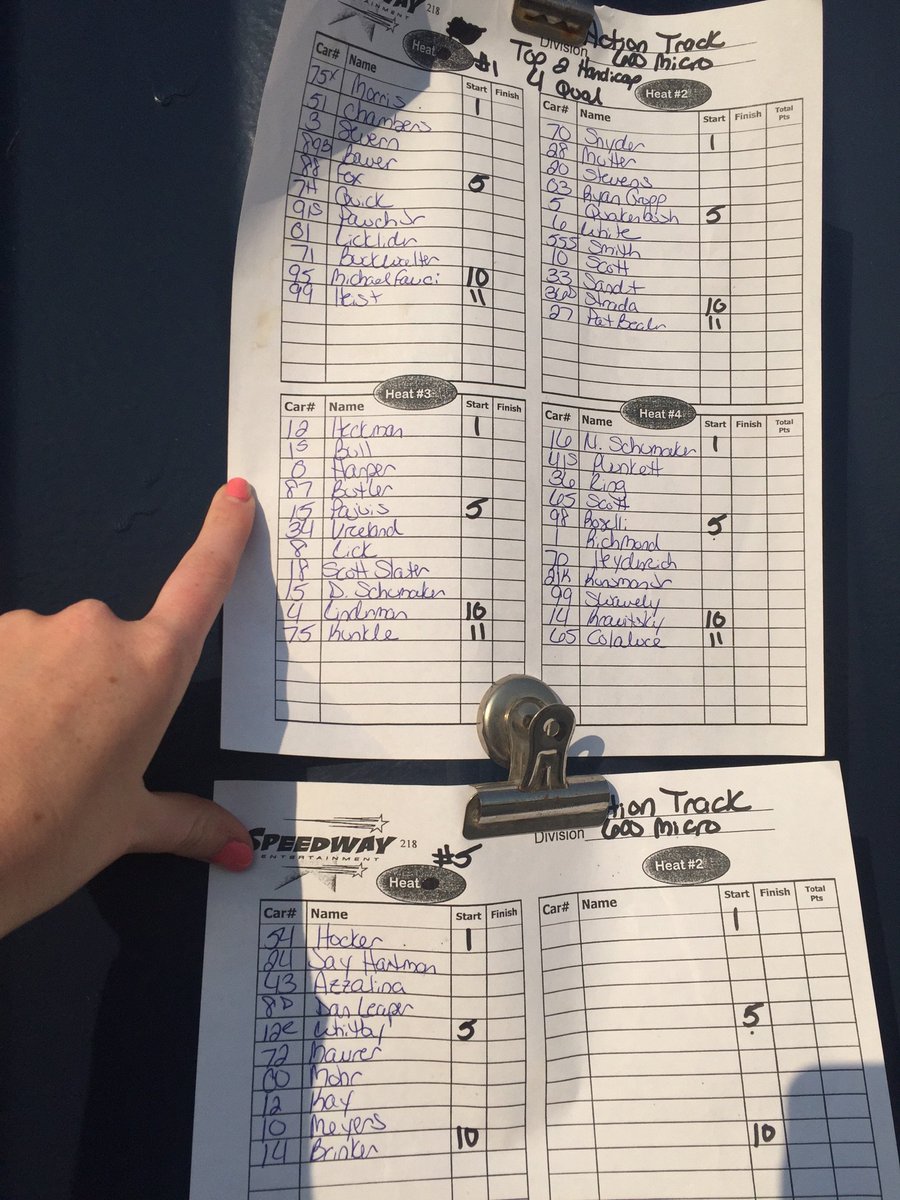 SPEEDWAY 218
ENTERTAINMENT
Heat #1
Top 2 Handicap
4 Qual
Division Action Track
600 Micro
Car# Name Start Finish
75x Morris 1
51 Chambers
3 Severn
89B Bauer
88 Fox 5
7H Quick
91S Pauch Jr
01 Licklider
71 Buckwalter
95 Michael Fauci 10
99 Heist 11
Heat #2
Car# Name Start Finish Total Pts
70 Snyder 1
28 Mutter
20 Stevens
03 Ryan Gropp
5 Quakenbush 5
6 White
555 Smith
10 Scott
33 Sandt
360 Strada 10
27 Pat Bealer 11
Heat #3
Car# Name Start Finish
12 Heckman 1
1S Bull
0 Harper
87 Butler
15 Paivis 5
34 Vreeland
8 Lick
18 Scott Slater
15 D. Schumaker
4 Lindenman 10
75 Kunkle 11
Heat #4
Car# Name Start Finish Total Pts
16 N. Schumaker 1
41S Plunkett
36 Ring
65 Scott
98 Roselli 5
1 Richmond
70 Heydenreich
21K Kunsman Jr
99 Snavely
14 Kravitsky 10
65 Colaluce 11
SPEEDWAY 218
ENTERTAINMENT
#5
Heat
Division Action Track
600 Micro
Car# Name Start Finish
54 Hocker 1
24 Jay Hartman
43 Azzalina
8D Dan Leaper
12e Whitby 5
72 Maurer
00 Mohr
12 Kay
10 Meyers 10
14 Brinker
Heat #2
Car# Name Start Finish Total Pts
1
5
10